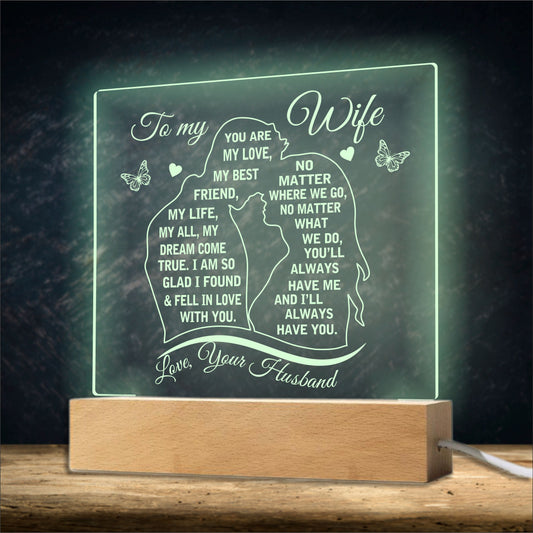 To my Wife
YOU ARE
MY LOVE,
MY BEST
FRIEND,
MY LIFE,
MY ALL, MY
DREAM COME
TRUE. I AM SO
GLAD I FOUND
& FELL IN LOVE
WITH YOU.
NO
MATTER
WHERE WE GO,
NO MATTER
WHAT
WE DO,
YOU'LL
ALWAYS
HAVE ME
AND I'LL
ALWAYS
HAVE YOU.
Love, Your Husband